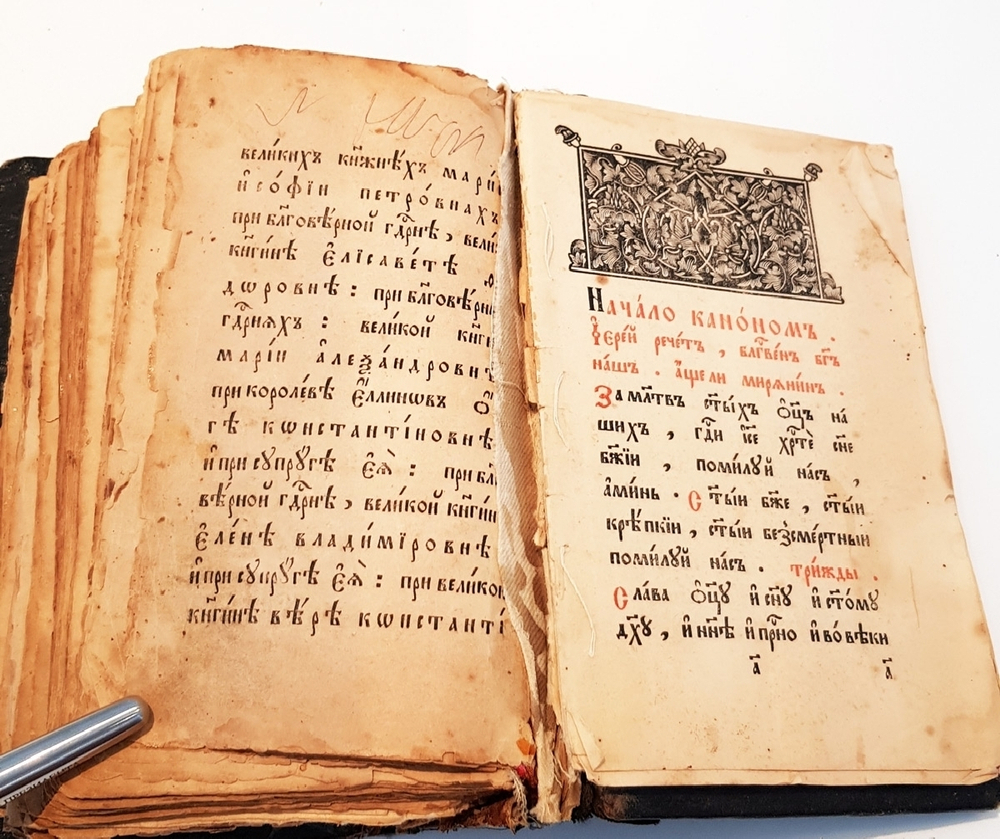 великихъ кн҃жнѣхъ марі
и҆ со́фїи петро́внахъ
при бл҃гове́рной гдⷭ҇рнѣ, вели
кн҃ги́нѣ є҆лїсаве́тѣ
дѡровнѣ: при бл҃гове́рны
гдⷭ҇рняхъ: вели́кой кн҃ги
марі́и а҆леѯа́ндровнѣ
при короле́вѣ є҆́ллиновъ ѻ҆
гѣ кѡнстанті́новнѣ
и҆ при сꙋпрꙋ́гѣ є҆ѧ̀: при бл҃
ве́рной гдⷭ҇рнѣ, вели́кой кн҃ги́н
є҆ле́нѣ влади́мїровнѣ
и҆ при сꙋпрꙋ́гѣ є҆ѧ̀: при велико
кн҃ги́нѣ вѣ́рѣ кѡнстанті
Нача́ло кано́номъ.
І҆ере́й рече́тъ, блгⷭ҇ве́нъ бг҃ъ
на́шъ. а҆́ще ли мирѧни́нъ.
За мл҃твъ ст҃ы́хъ ѻ҆ц҃ъ на́
шихъ, гдⷭ҇и і҆с҃е хрⷭ҇те́ сн҃е
бж҃їи, поми́лꙋй на́съ,
а҆ми́нь. Ст҃ы́и бж҃е, ст҃ы́и
крѣ́пкїи, ст҃ы́и безсме́ртныи
поми́лꙋй на́съ. три́жды.
Сла́ва ѻ҆ц҃ꙋ̀ и҆ сн҃ꙋ и҆ ст҃о́мꙋ
дх҃ꙋ, и҆ нн҃ѣ и҆ прⷭ҇но и҆ во вѣ́ки
а҃ а҃